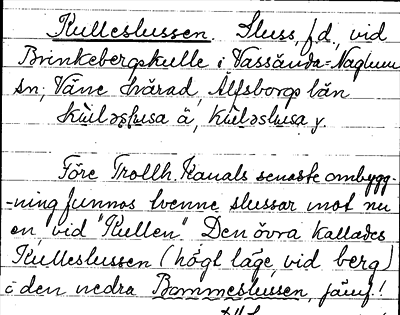 Kulleslussen. Sluss, f.d., vid
Brinkebergskulle i Vassända-Naglum
sn, Väne härad, Älfsborgs län
Före Trollh. Kanals senaste ombygg-
-ning funnos tvenne slussar mot nu
en vid "Kullen". Den övra kallades
Kulleslussen (högt läge, vid berg)
o den nedra Bommeslussen, jämf.!